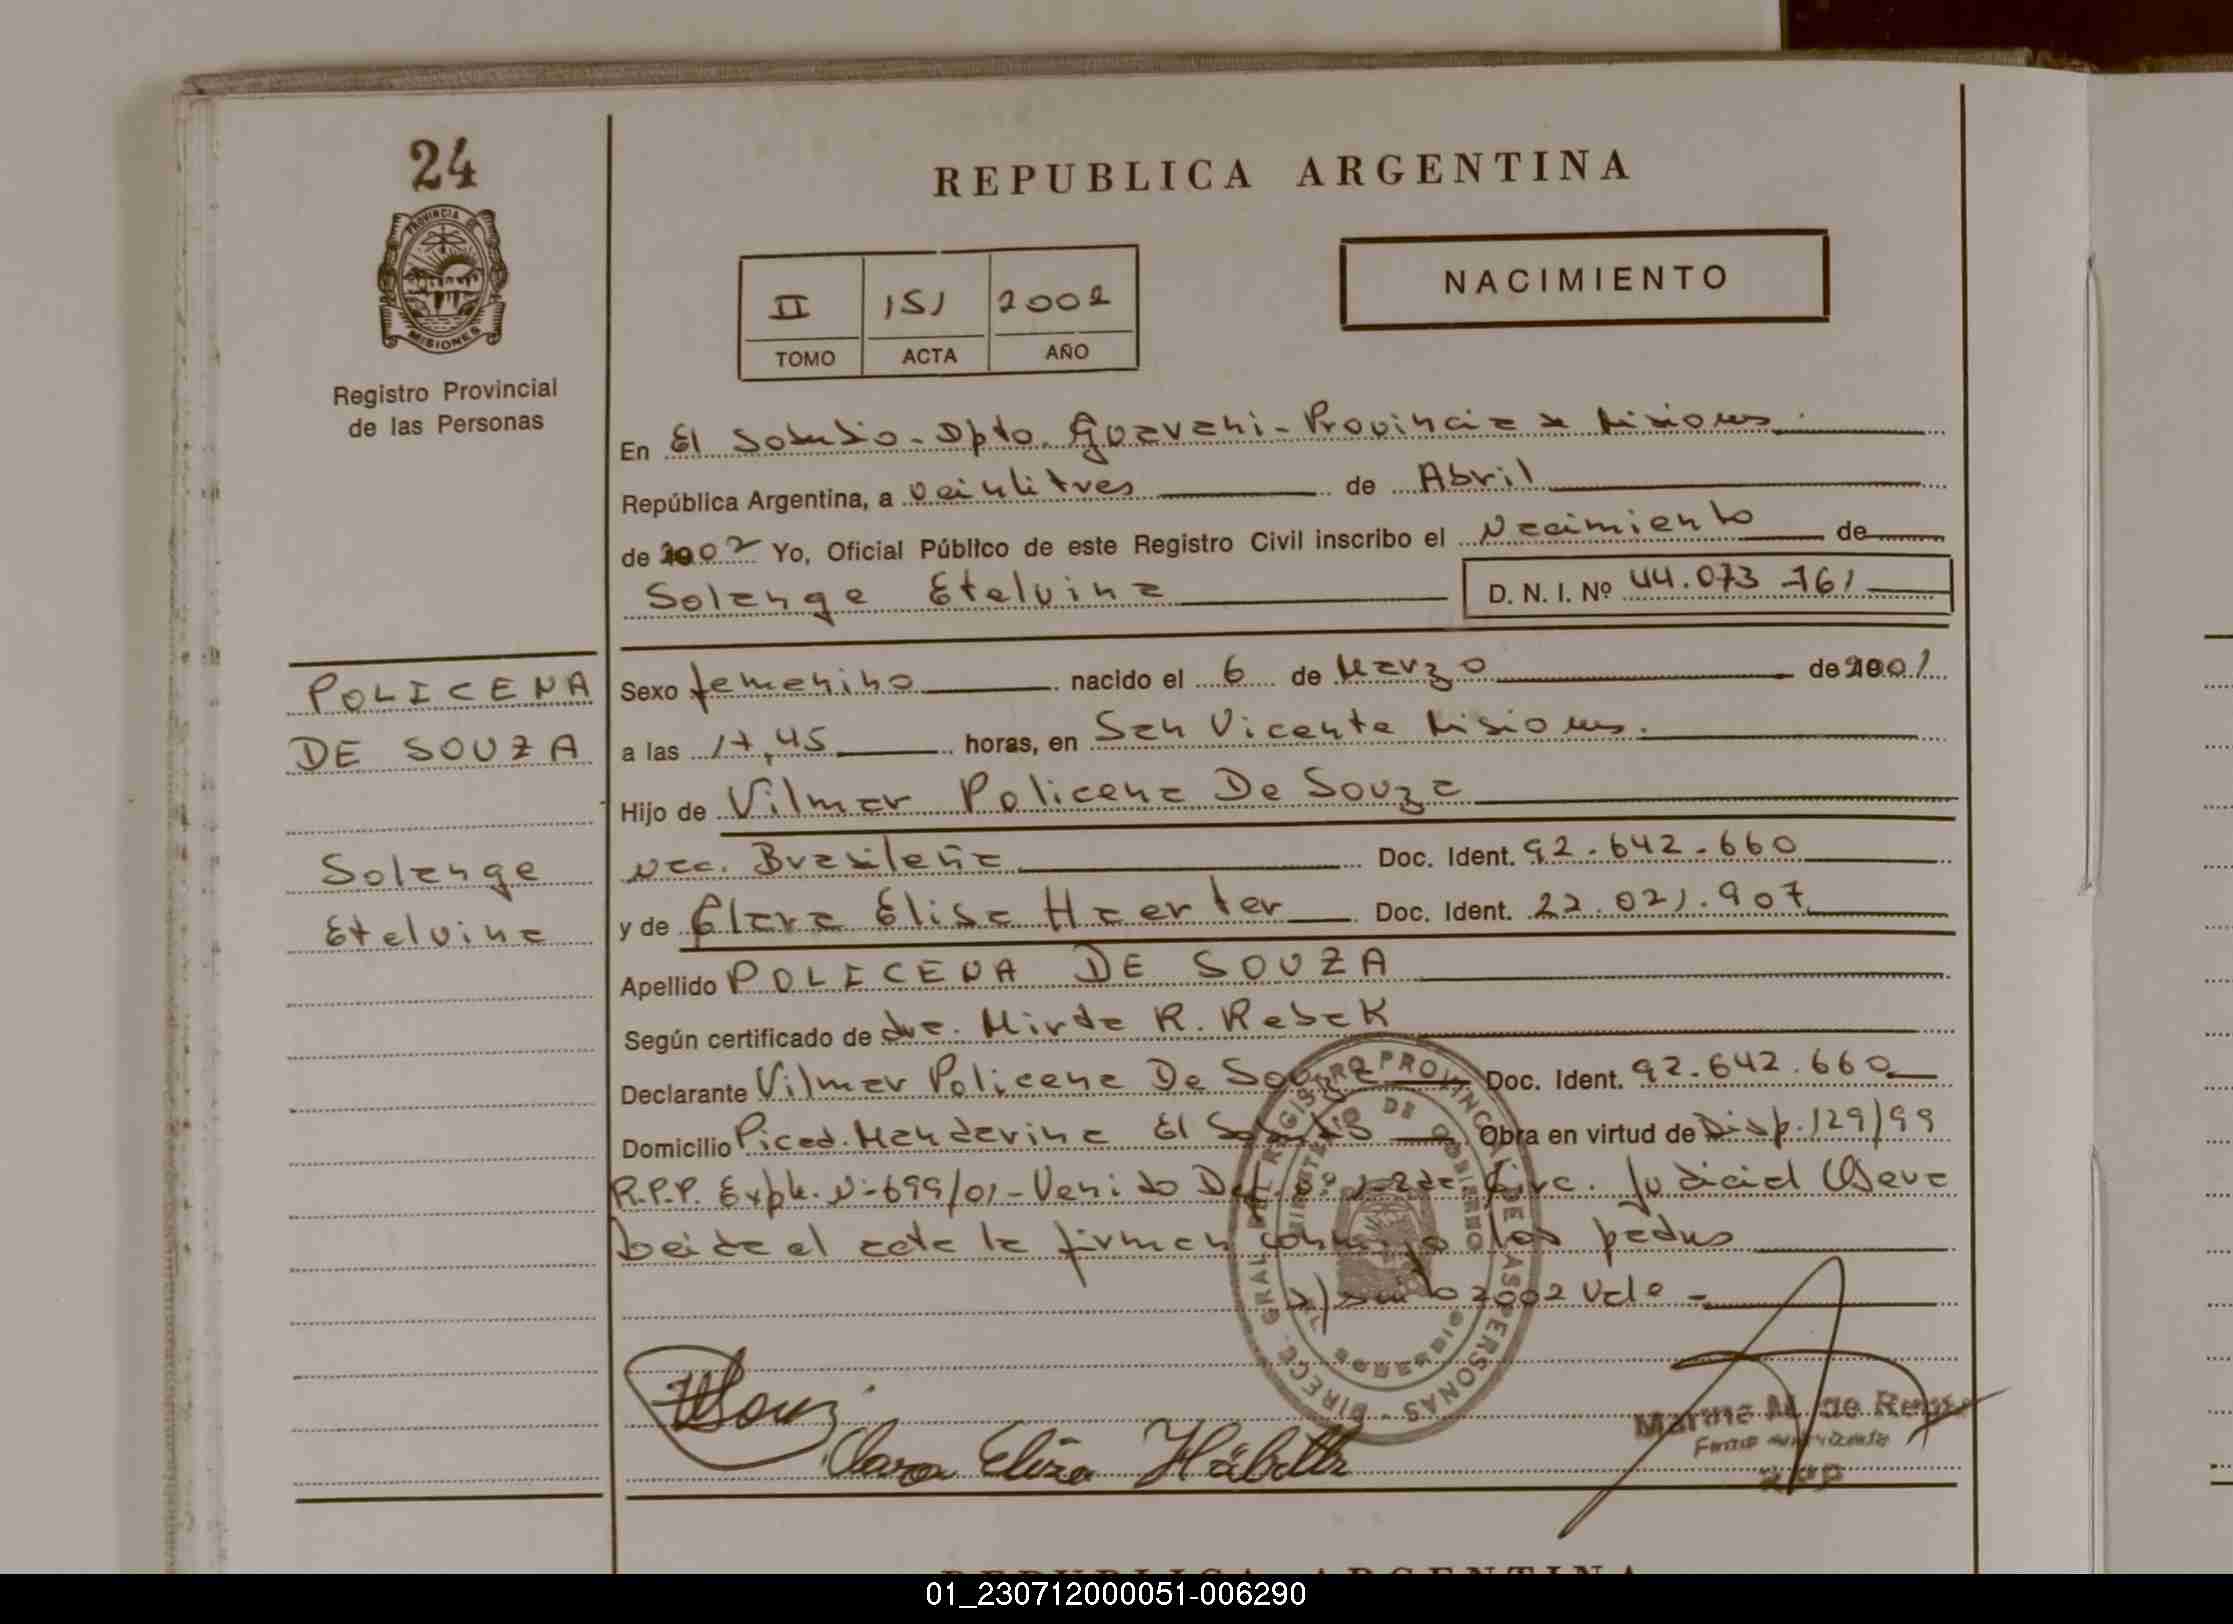 24
PROVINCIA DE
MISIONES
Registro Provincial
de las Personas
REPUBLICA ARGENTINA
II 151 2002
TOMO ACTA AÑO
NACIMIENTO
En El Soberbio - Dpto. Guarani - Provincia de Misiones.
República Argentina, a veintitres de Abril
de 2002 Yo, Oficial Público de este Registro Civil inscribo el Nacimiento de
Solange Etelvina D. N. I. Nº 44.073.161
POLICENA
DE SOUZA
Solange
Etelvina
Sexo femenino nacido el 6 de Marzo de 2001
a las 17,45 horas, en San Vicente Misiones.
Hijo de Vilmar Policena De Souza
Nac. Brasileña Doc. Ident. 92.642.660
y de Clara Elisa Haerter Doc. Ident. 22.021.907
Apellido POLICENA DE SOUZA
Según certificado de dra. Mirta R. Rebak
Declarante Vilmar Policena De Souza Doc. Ident. 92.642.660
Domicilio Picad. Mandarina El Soberbio Obra en virtud de Disp. 129/99
R.P.P. Expte. Nº 699/01 - Venido Def. Nº 2da Circ. Judicial Obera
Leida el acta la firman conmigo los padres
2002 Vale -
DIRECC. GRAL. DEL REGISTRO PROVINCIAL DE LAS PERSONAS
MINISTERIO DE GOBIERNO
Clara Eliza
Marina M. de
REPUBLICA ARGENTINA
01_230712000051-006290